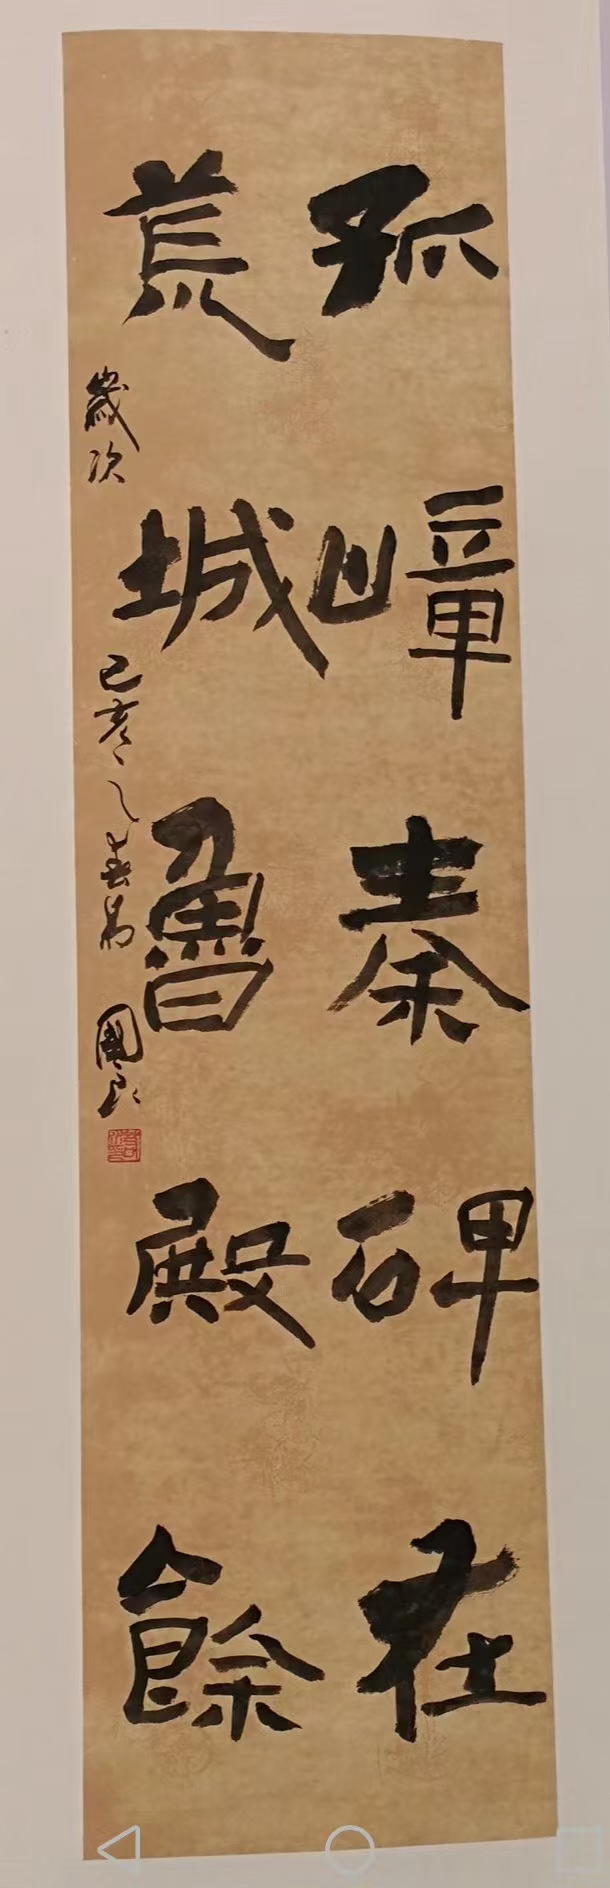 孤嶂秦碑在
荒城魯殿餘
歲次己亥之春月國良